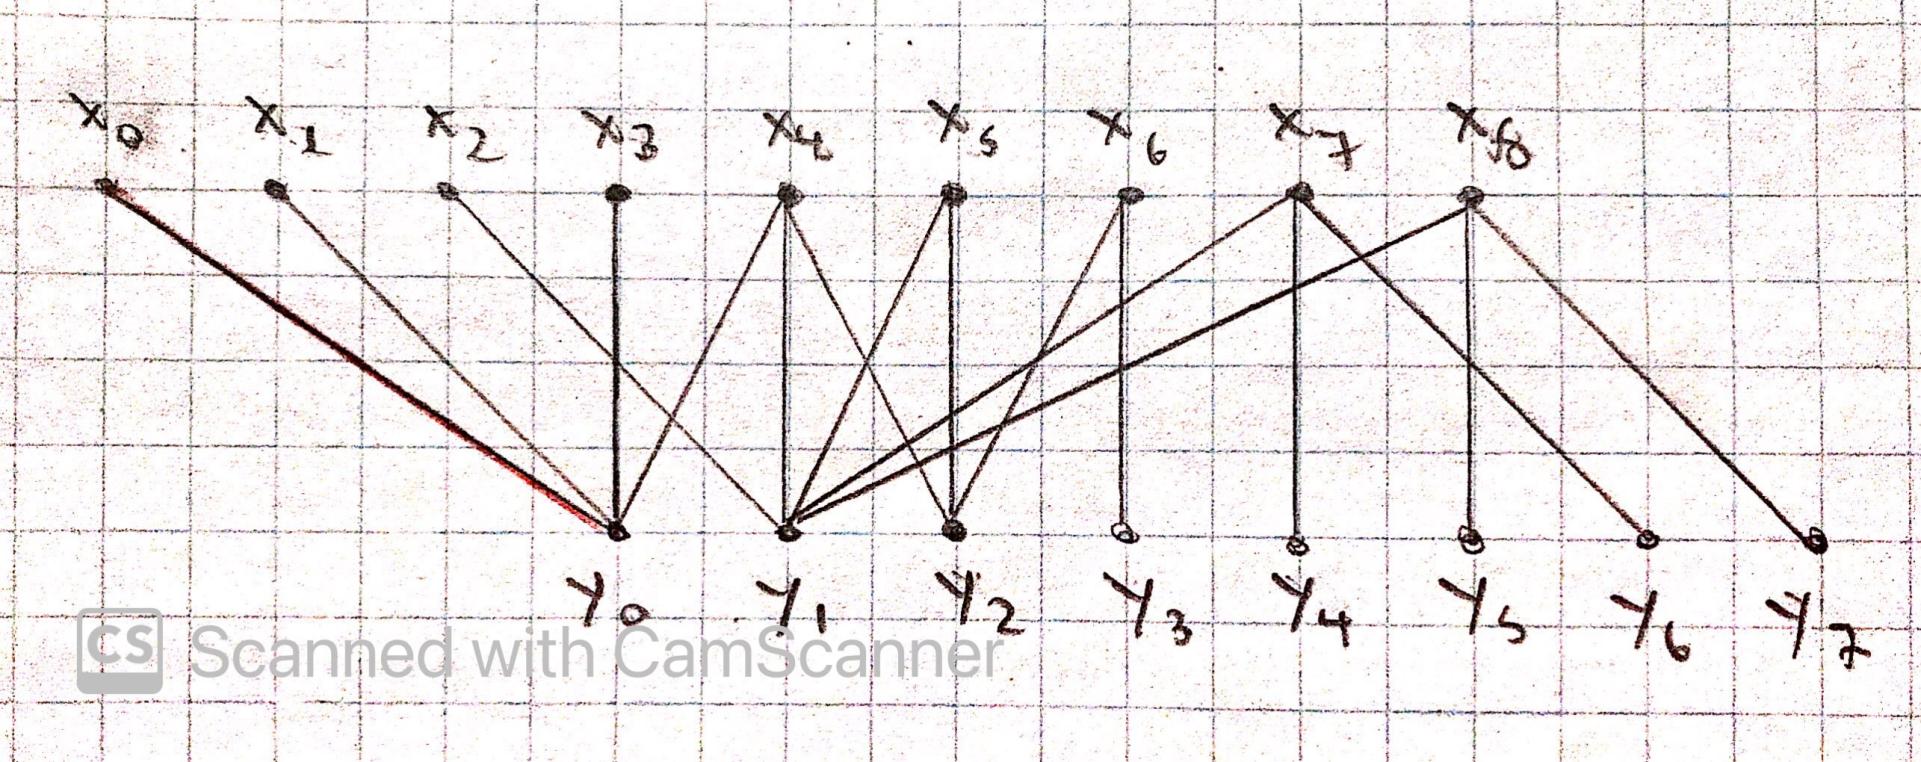 x₀ x₁ x₂ x₃ x₄ x₅ x₆ x₇ x₈
y₀ y₁ y₂ y₃ y₄ y₅ y₆ y₇
CS Scanned with CamScanner